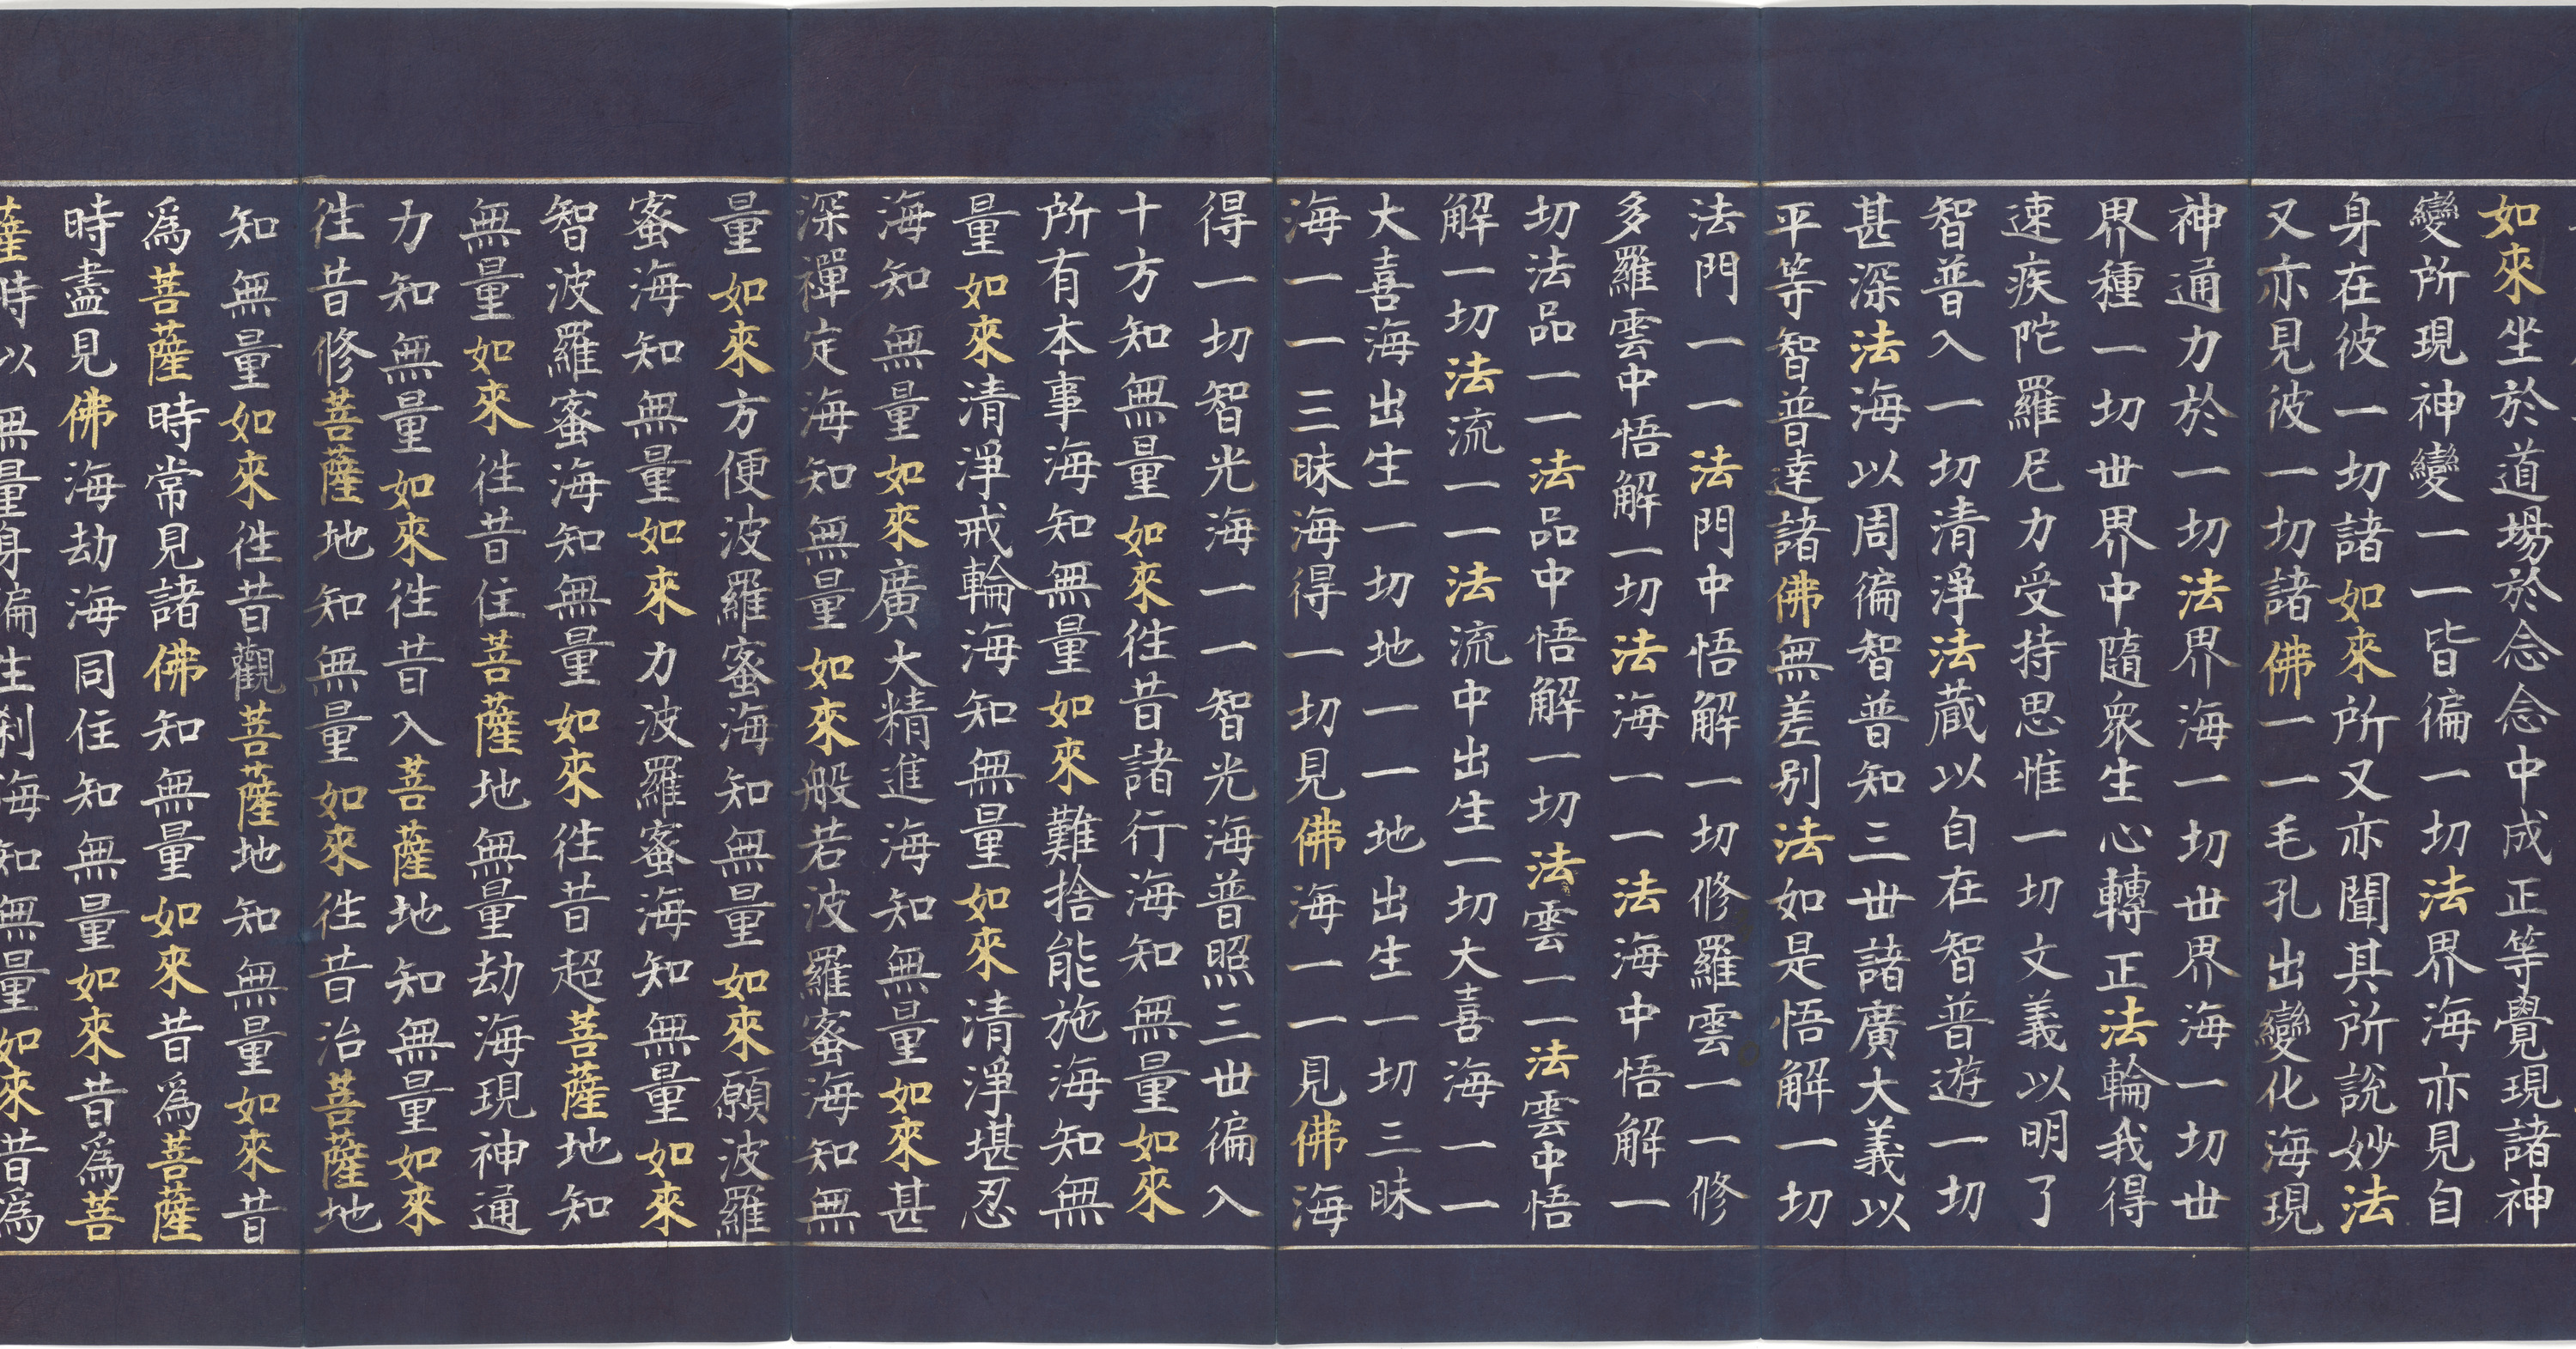 如來坐於道場於念念中成正等覺現諸神
變所現神變一一皆徧一切法界海亦見自
身在彼一切諸如來所又亦聞其所說妙法
又亦見彼一切諸佛一一毛孔出變化海現
神通力於一切法界海一切世界海一切世
界種一切世界中隨衆生心轉正法輪我得
速疾陀羅尼力受持思惟一切文義以明了
智普入一切清淨法蔵以自在智普遊一切
甚深法海以周徧智普知三世諸廣大義以
平等智普達諸佛無差别法如是悟解一切
法門一一法門中悟解一切修羅雲一一修
多羅雲中悟解一切法海一一法海中悟解一
切法品一一法品中悟解一切法雲一一法雲中悟
解一切法流一一法流中出生一切大喜海一一
大喜海出生一切地一一地出生一切三昧
海一一三昧海得一切見佛海一一見佛海
得一切智光海一一智光海普照三世徧入
十方知無量如來徃昔諸行海知無量如來
所有本事海知無量如來難捨能施海知無
量如來清淨戒輪海知無量如來清淨堪忍
海知無量如來廣大精進海知無量如來甚
深禪定海知無量如來般若波羅蜜海知無
量如來方便波羅蜜海知無量如來願波羅
蜜海知無量如來力波羅蜜海知無量如來
智波羅蜜海知無量如來徃昔超菩薩地知
無量如來徃昔住菩薩地無量劫海現神通
力知無量如來徃昔入菩薩地知無量如來
徃昔修菩薩地知無量如來徃昔治菩薩地
知無量如來徃昔觀菩薩地知無量如來昔
爲菩薩時常見諸佛知無量如來昔爲菩薩
時盡見佛海劫海同住知無量如來昔爲菩
薩時以無量身徧生刹海知無量如來昔爲